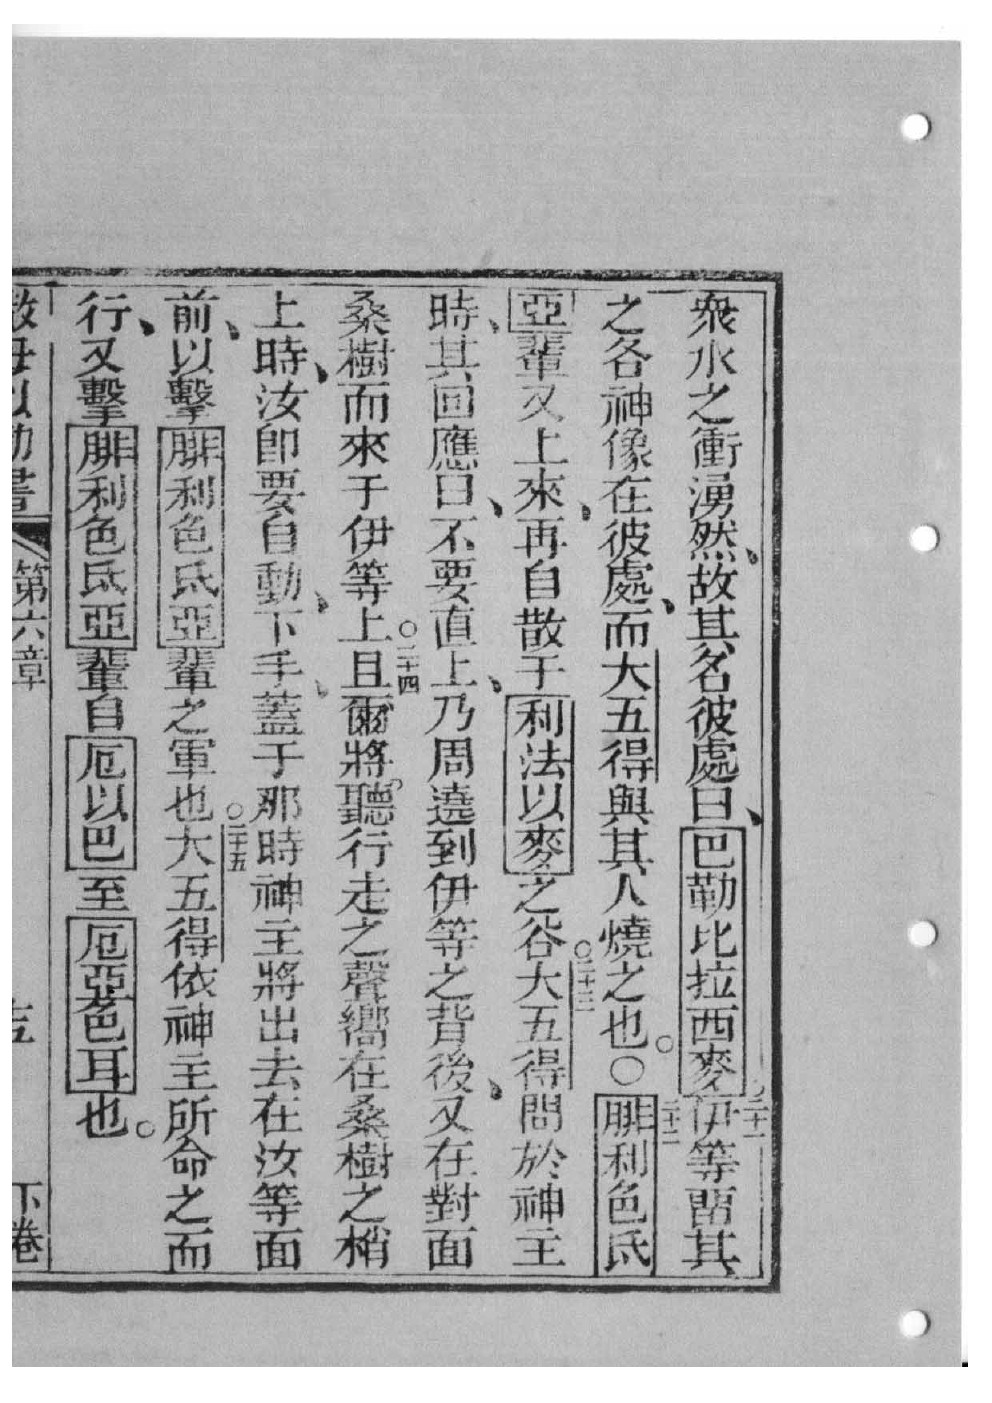 衆水之衝湧然、故其名彼處曰、巴勒比拉西麥。二十一伊等畱其
之各神像在彼處、而大五得與其人燒之也。○二十二腓利色氐
亞輩又上來、再自散于利法以麥之谷○二十三大五得問於神主
時、其回應曰、不要直上、乃周遶到伊等之背後、又在對面
桑樹而來于伊等上○二十四且爾將聽行走之聲嚮在桑樹之梢
上時、汝卽要自動、下手、蓋于那時神主將出去在汝等面
前、以擊腓利色氐亞輩之軍也○二十五大五得依神主所命之而
行、又擊腓利色氐亞輩自厄以巴至厄亞色耳也。
母以 書 第六章 五 下卷